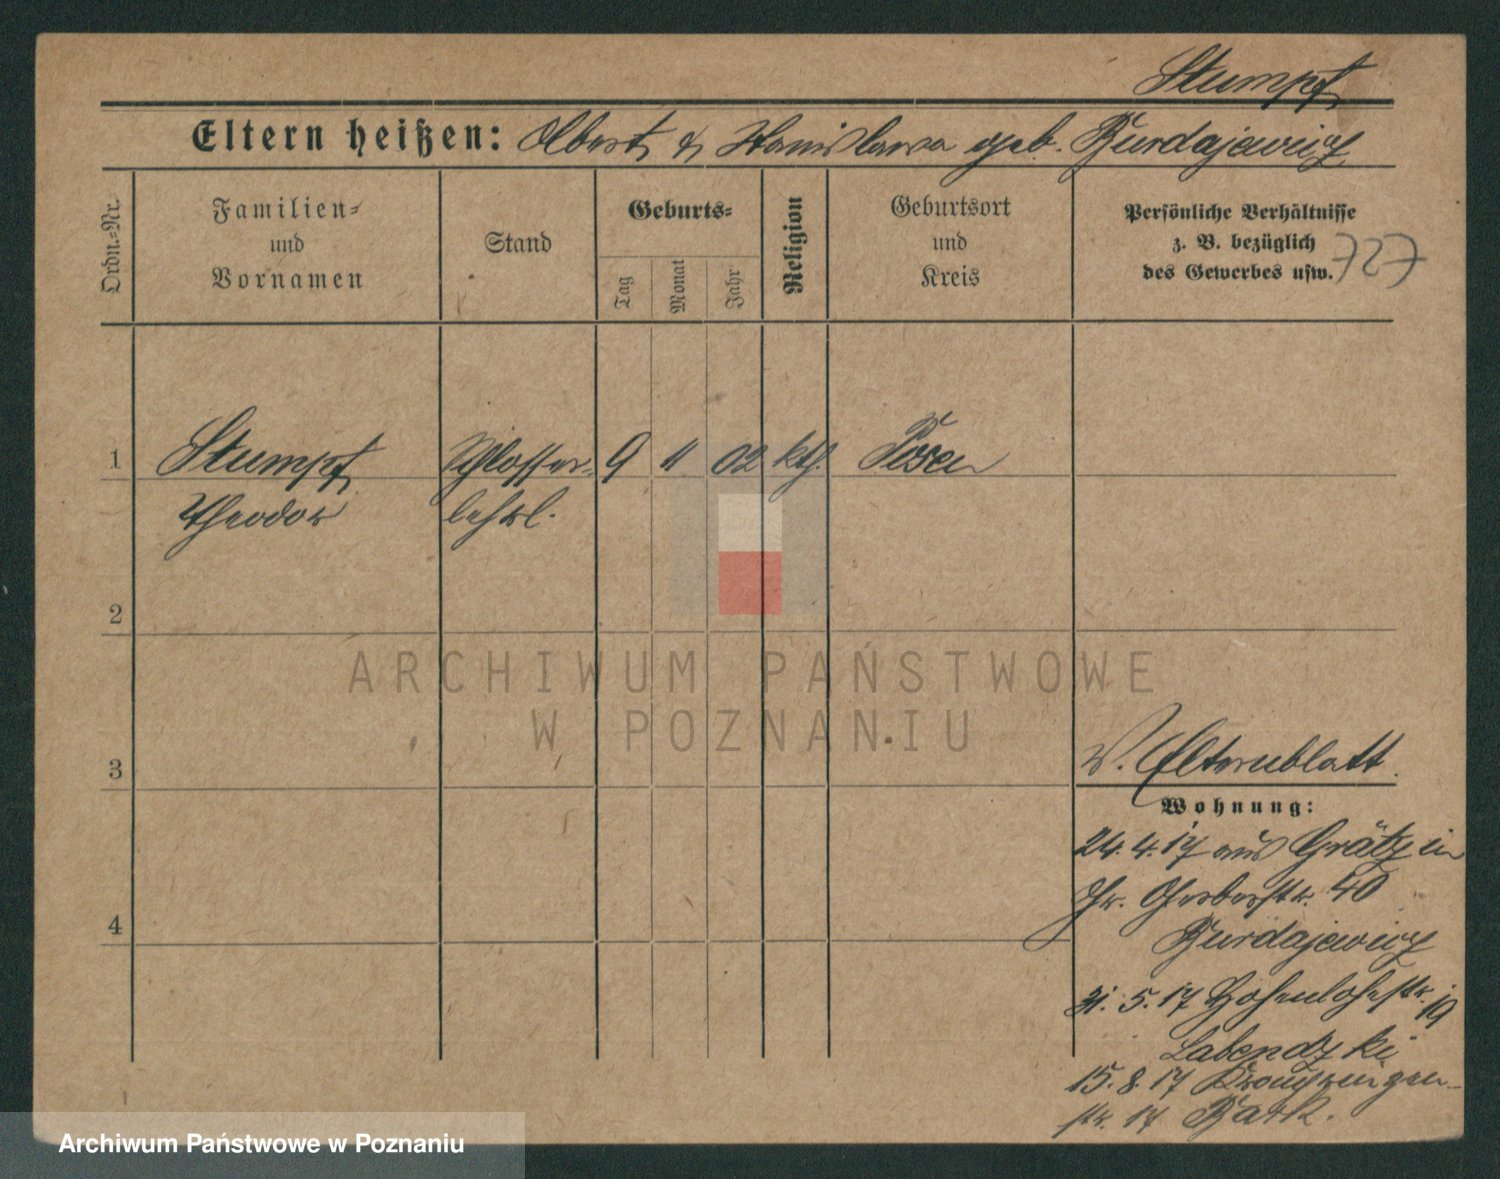 Stumpf
Eltern heißen: Albert & Stanislawa geb. Burdajewicz
Ordn.-Nr.
Familien-
und
Vornamen
Stand
Geburts-
Tag
Monat
Jahr
Religion
Geburtsort
und
Kreis
Persönliche Verhältnisse
z. B. bezüglich
des Gewerbes usw.
727
1 Stumpf Schlosser- 9 11 02 kth. Posen
Theodor lehrl.
2
ARCHIWUM PAŃSTWOWE
W POZNANIU
3
v. Elternblatt
Wohnung:
24. 4. 17 aus Grätz in
Gr. Gerberstr. 40
4
Burdajewicz
31. 5. 17 Hohenlohestr. 19
Labendzki
15. 8. 17 Kronprinzen-
str. 17 Bark.
Archiwum Państwowe w Poznaniu